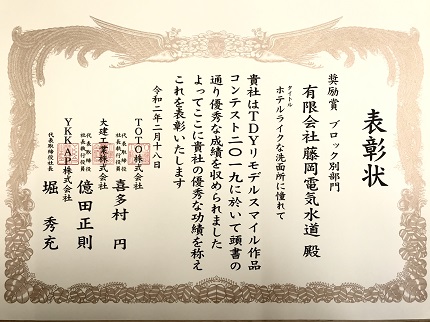 表彰状
奨励賞 ブロック別部門
有限会社藤岡電気水道 殿
タイトル
ホテルライクな洗面所に憧れて
貴社はTDYリモデルスマイル作品
コンテスト二〇一九に於いて頭書の
通り優秀な成績を収められました
よってここに貴社の優秀な功績を称え
これを表彰いたします
令和二年二月十八日
TOTO株式会社
代表取締役
社長執行役員
喜多村 円
大建工業株式会社
代表取締役
社長執行役員
億田正則
YKK AP株式会社
代表取締役社長
堀 秀充